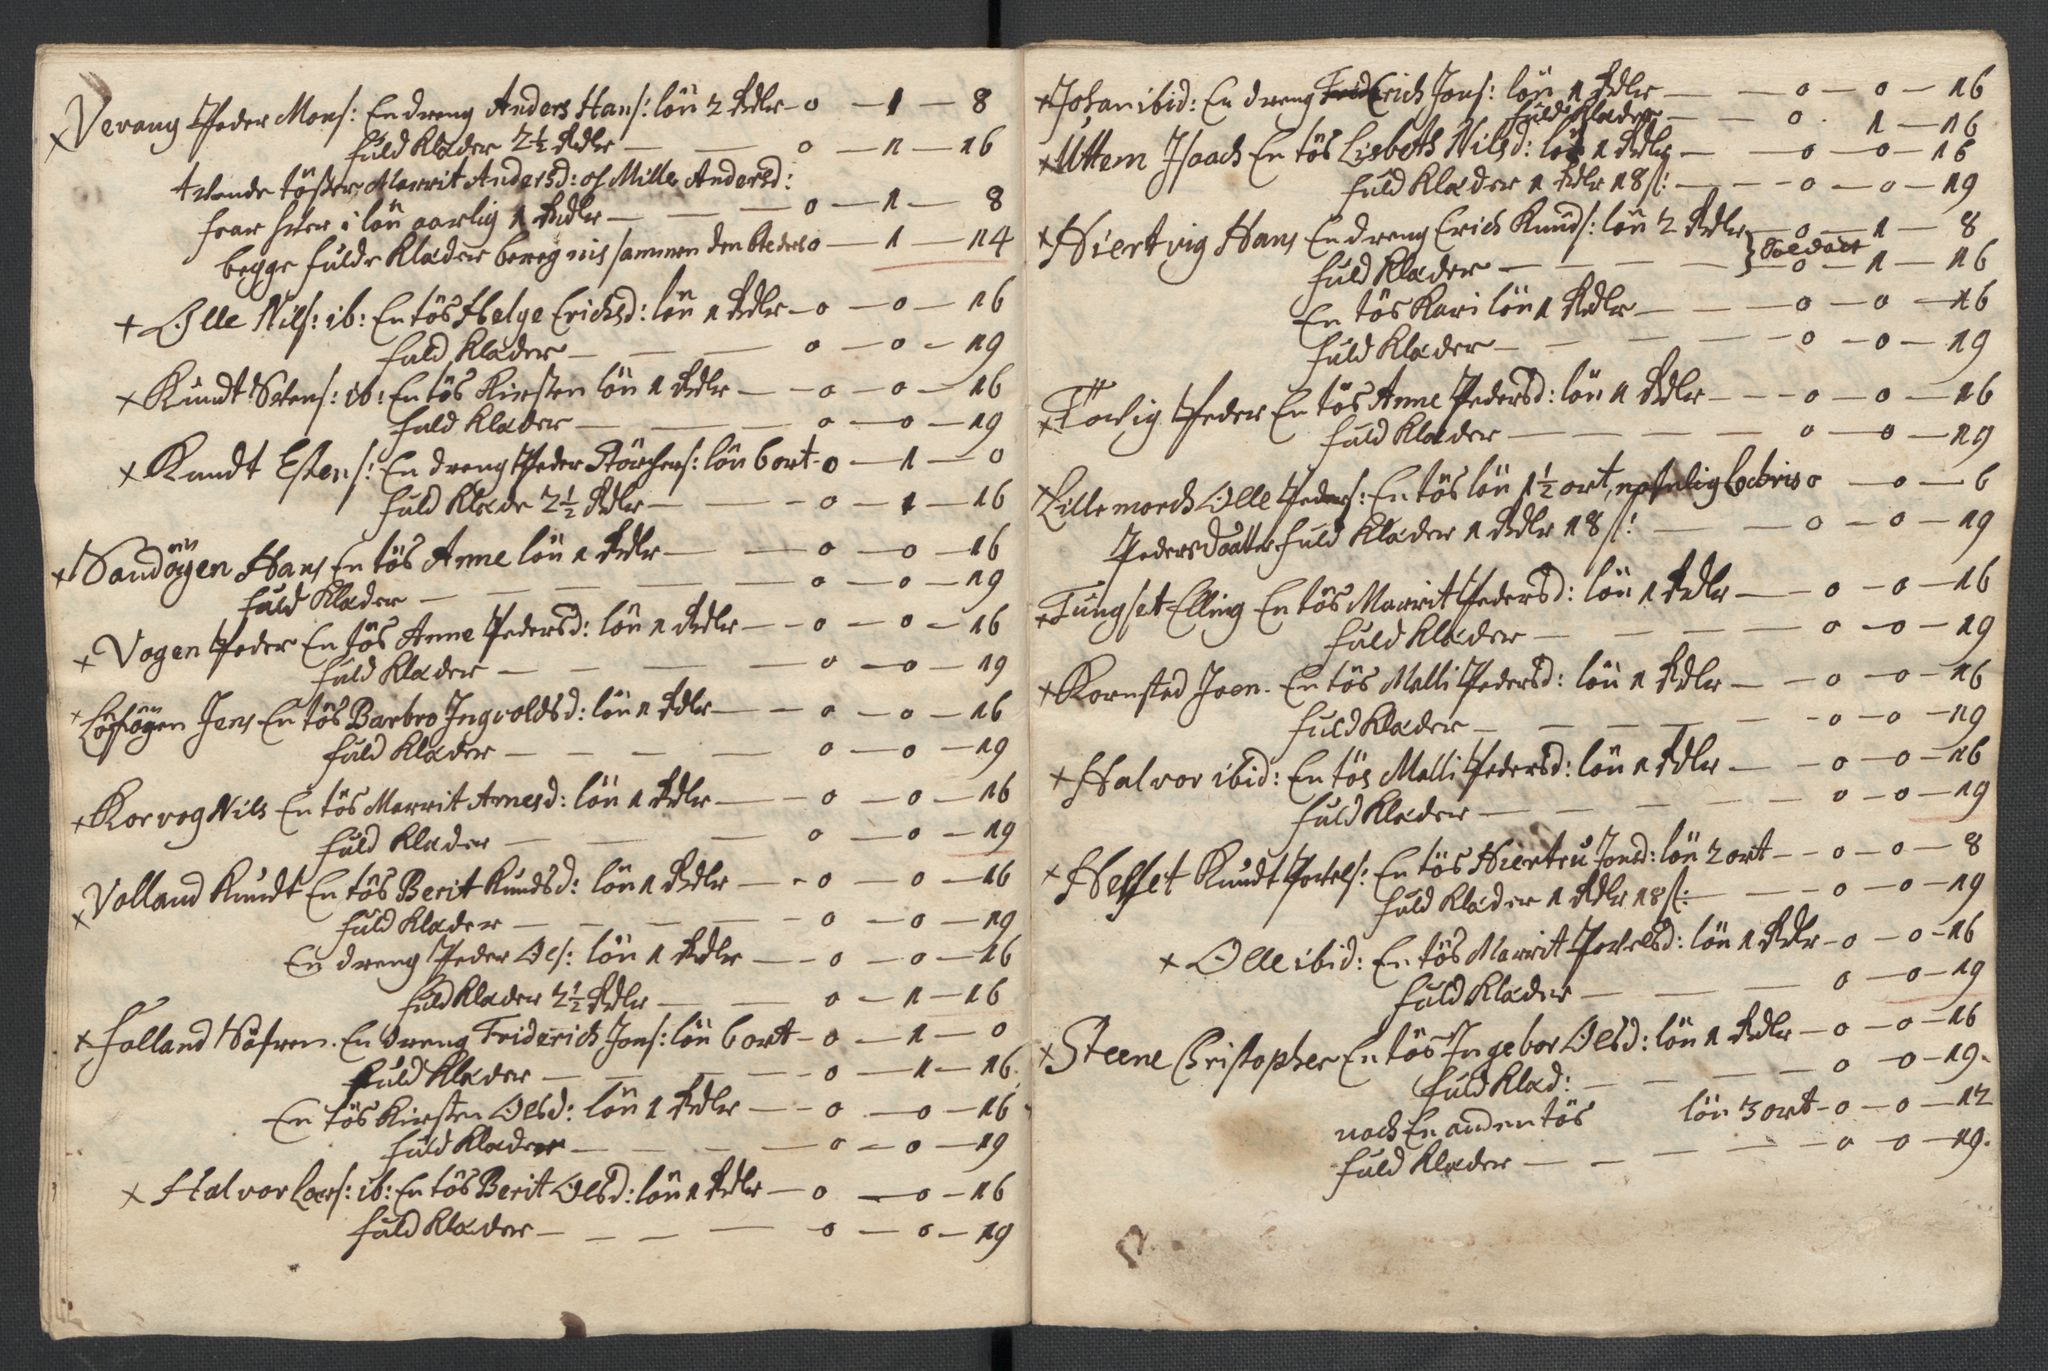 × Verang Peder Mons: En dreng Anders Hans: lön 2 Rdlr — 0 — 1 — 8
fuld Klæder 2½ Rdlr — — 0 — 1 — 16
tvende tösser, Marrit Andersd: oc Mille Andersd:
faar hver i lön aarlig 1 Rdlr — — — 0 — 1 — 8
begge fulde Klæder bereignis sammen den 0 — 1 — 14
× Olle Nils: ib: En tös Helge Erichsd: lön 1 Rdlr — 0 — 0 — 16
fuld Klæder — — — 0 — 0 — 19
× Knudt Stens: ib: En tös Kirsten lön 1 Rdlr — — 0 — 0 — 16
fuld Klæder — — — 0 — 0 — 19
× Knudt Estens: En dreng Peder lön 6 ort — 0 — 1 — 0
fuld Klæde 2½ Rdlr — — — 0 — 1 — 16
× Sandöÿen Hans En tös Anne lön 1 Rdlr — — 0 — 0 — 16
fuld Klæder — — — — 0 — 0 — 19
× Vogen Peder En tös Anne Pedersd: lön 1 Rdlr — — 0 — 0 — 16
fuld Klæder — — — — 0 — 0 — 19
× Jens En tös Barbro Ingvoldsd: lön 1 Rdlr — — 0 — 0 — 16
fuld Klæder — — — — 0 — 0 — 19
× Korvog Nils En tös Marrit Arnesd: lön 1 Rdlr — — 0 — 0 — 16
fuld Klæder — — — 0 — 0 — 19
× Volland Knudt En tös Berit Knudsd: lön 1 Rdlr — — 0 — 0 — 16
fuld Klæder — — — — 0 — 0 — 19
En dreng Peder Ols: lön 1 Rdlr — — 0 — 0 — 16
fuld Klæder 2½ Rdlr — — 0 — 1 — 16
× Folland Söfren. En dreng Friderich Jons: lön 6 ort — 0 — 1 — 0
fuld Klæder — — — — 0 — 1 — 16
En tös Kirsten Olsd: lön 1 Rdlr — — 0 — 0 — 16
fuld Klæder — — — — 0 — 0 — 19
× Halvor Lars: ib: En tös Berit Olsd: lön 1 Rdlr — 0 — 0 — 16
fuld Klæder — — — — 0 — 0 — 19
× Johan ibid: En dreng Erich Jons: lön 1 Rdlr — — 0 — 0 — 16
fuld Klæder — 0 . 1 — 16
× Uttem Isaach En tös Lisbeth Nilsd: lön 1 Rdlr — — 0 — 0 — 16
fuld Klæder 1 Rdlr 18 s: — — 0 — 0 — 19
× Hiertvig Hans En dreng Erich Knuds: lön 2 Rdlr } Soldatt — 0 — 1 — 8
fuld Klæder — — — — 0 — 1 — 16
En tös Kari lön 1 Rdlr — — — 0 — 0 — 16
fuld Klæder — — — — 0 — 0 — 19
× Peder En tös Anne Pedersd: lön 1 Rdlr — — 0 — 0 — 16
fuld Klæder — — — — 0 — 0 — 19
× Lillemorch Olle Peders: En tös lön 1½ ort, 0 — 0 — 6
Pedersdaatter fuld Klæder 1 Rdlr 18 s: — — 0 — 0 — 19
× Tungset Elling En tös Marrit Pedersd: lön 1 Rdlr — — 0 — 0 — 16
fuld Klæder — — — — 0 — 0 — 19
× Kornsted Joen. En tös Malli Pedersd: lön 1 Rdlr — — 0 — 0 — 16
fuld Klæder — — — — 0 — 0 — 19
× Halvor ibid: En tös Malli Pedersd: lön 1 Rdlr — — 0 — 0 — 16
fuld Klæder — — — — 0 — 0 — 19
× Helset Knudt Povels: En tös Hiertru Jonsd: lön 2 ort — — 0 — 0 — 8
fuld Klæder 1 Rdlr 18 s: — — 0 — 0 — 19
× Olle ibid: En tös Marrit Povelsd: lön 1 Rdlr — 0 — 0 — 16
fuld Klæder — — — 0 — 0 — 19
× Steene Christopher En tös Ingebor Olsd: lön 1 Rdlr — 0 — 0 — 16
fuld Klæd: — — — — 0 — 0 — 19.
noch En anden tös lön 3 ort — 0 — 0 — 12
fuld Klæder — — — — 0 — 0 — 19.